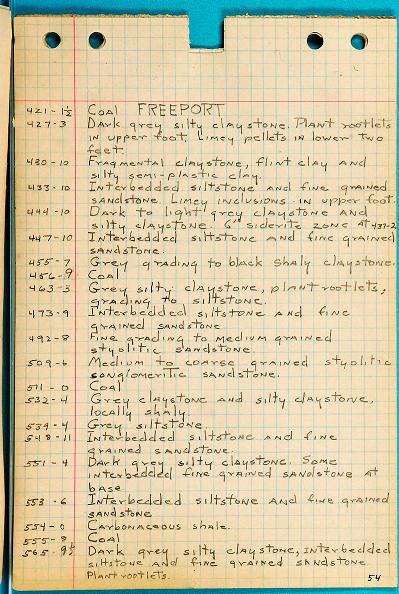 421-1½ Coal FREEPORT
427-3 Dark grey silty claystone. Plant rootlets
in upper foot. Limey pellets in lower two
feet.
430-10 Fragmental claystone, flint clay and
silty semi-plastic clay.
433-10 Interbedded siltstone and fine grained
sandstone. Limey inclusions in upper foot.
444-10 Dark to light grey claystone and
silty claystone. 6" siderite zone at 437-2
447-10 Interbedded siltstone and fine grained
sandstone.
455-7 Grey grading to black shaly claystone.
456-9 Coal
463-3 Grey silty claystone, plant rootlets,
grading to siltstone.
473-9 Interbedded siltstone and fine
grained sandstone
492-8 Fine grading to medium grained
styolitic sandstone
509-6 Medium to coarse grained styolitic
conglomeritic sandstone.
511-0 Coal
532-4 Grey claystone and silty claystone,
locally shaly.
539-4 Grey siltstone.
548-11 Interbedded siltstone and fine
grained sandstone.
551-4 Dark grey silty claystone. Some
interbedded fine grained sandstone at
base
553-6 Interbedded siltstone and fine grained
sandstone
554-0 Carbonaceous shale.
555-8 Coal
565-9½ Dark grey silty claystone, interbedded
siltstone and fine grained sandstone
Plant rootlets.
54